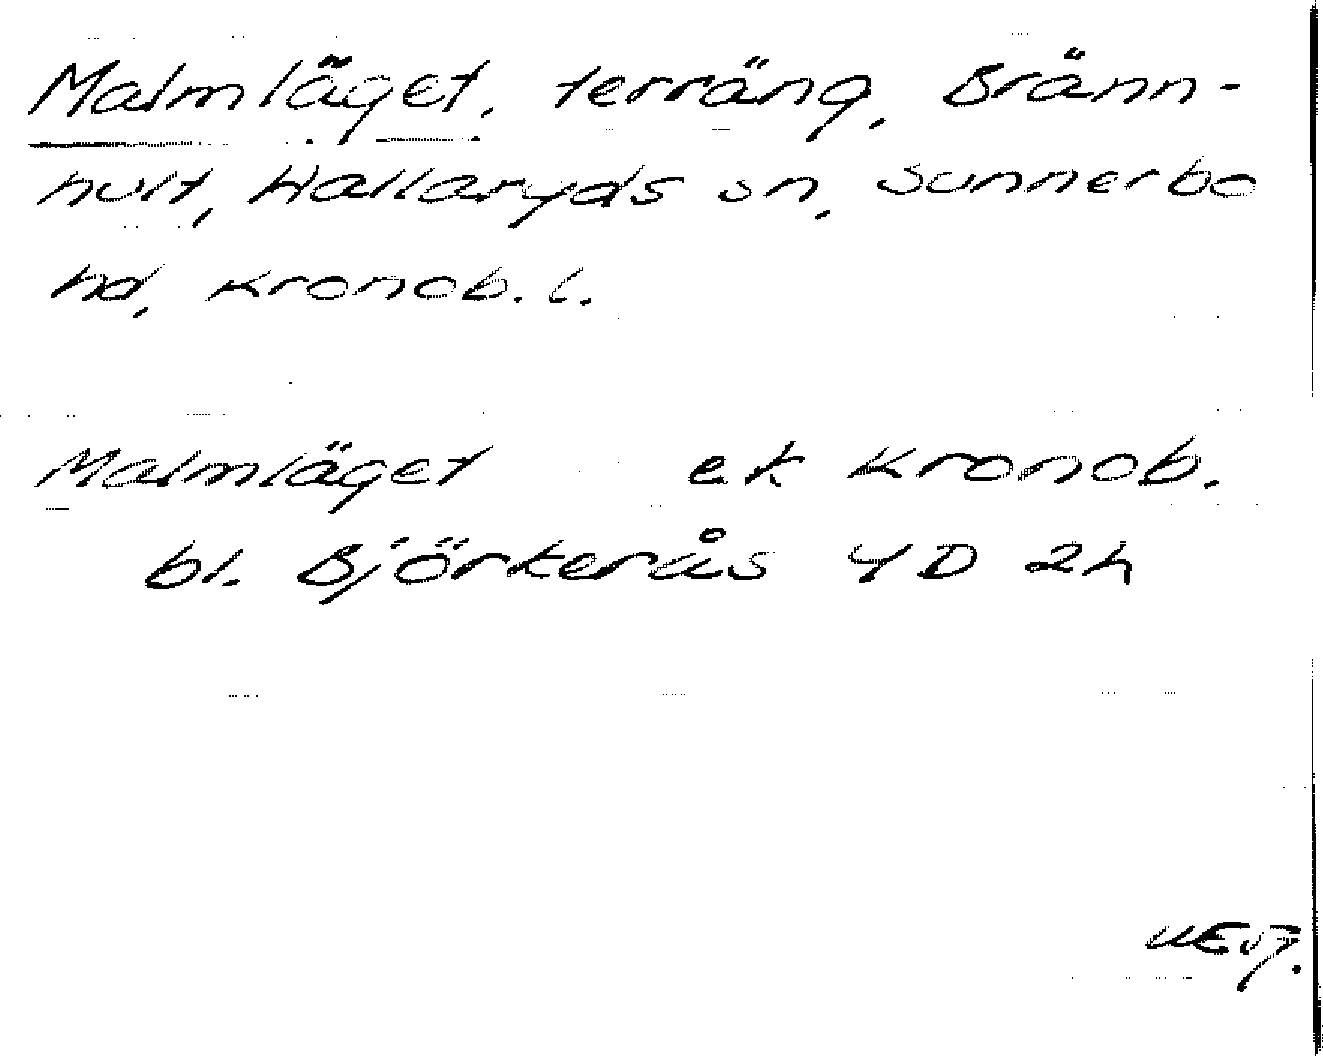 Malmläget, terräng, Bränn-
hult, Hallaryds sn, Sunnerbo
hd, Kronob. l.
Malmläget ek Kronob.
bl. Björkerås 4D 2h